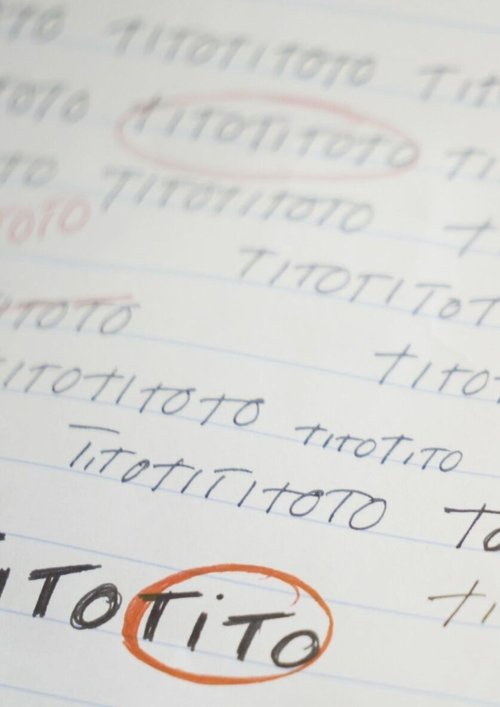 TO TITOTITOTO TIT
TOTO TITOTITOTO TI
TO TITOTITOTO T
TOTO
TITOTITOT
TOTO
TITO
ITOTITOTO TITOTITO
TiTOTITITOTO TO
TI
ITOTiTO